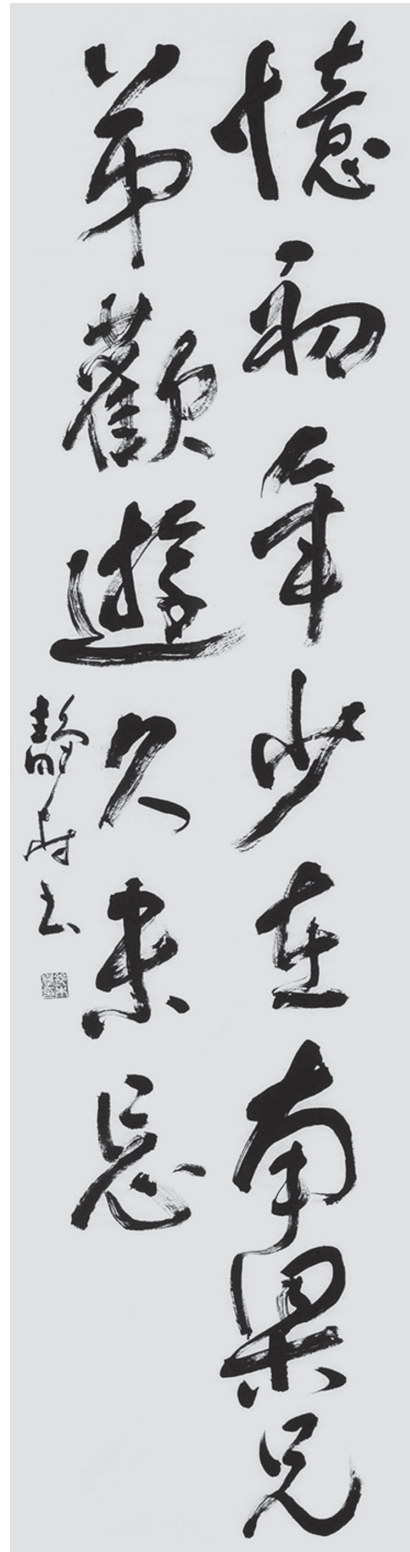 憶初年少在南梁兄
弟歡遊久未忘
静村书